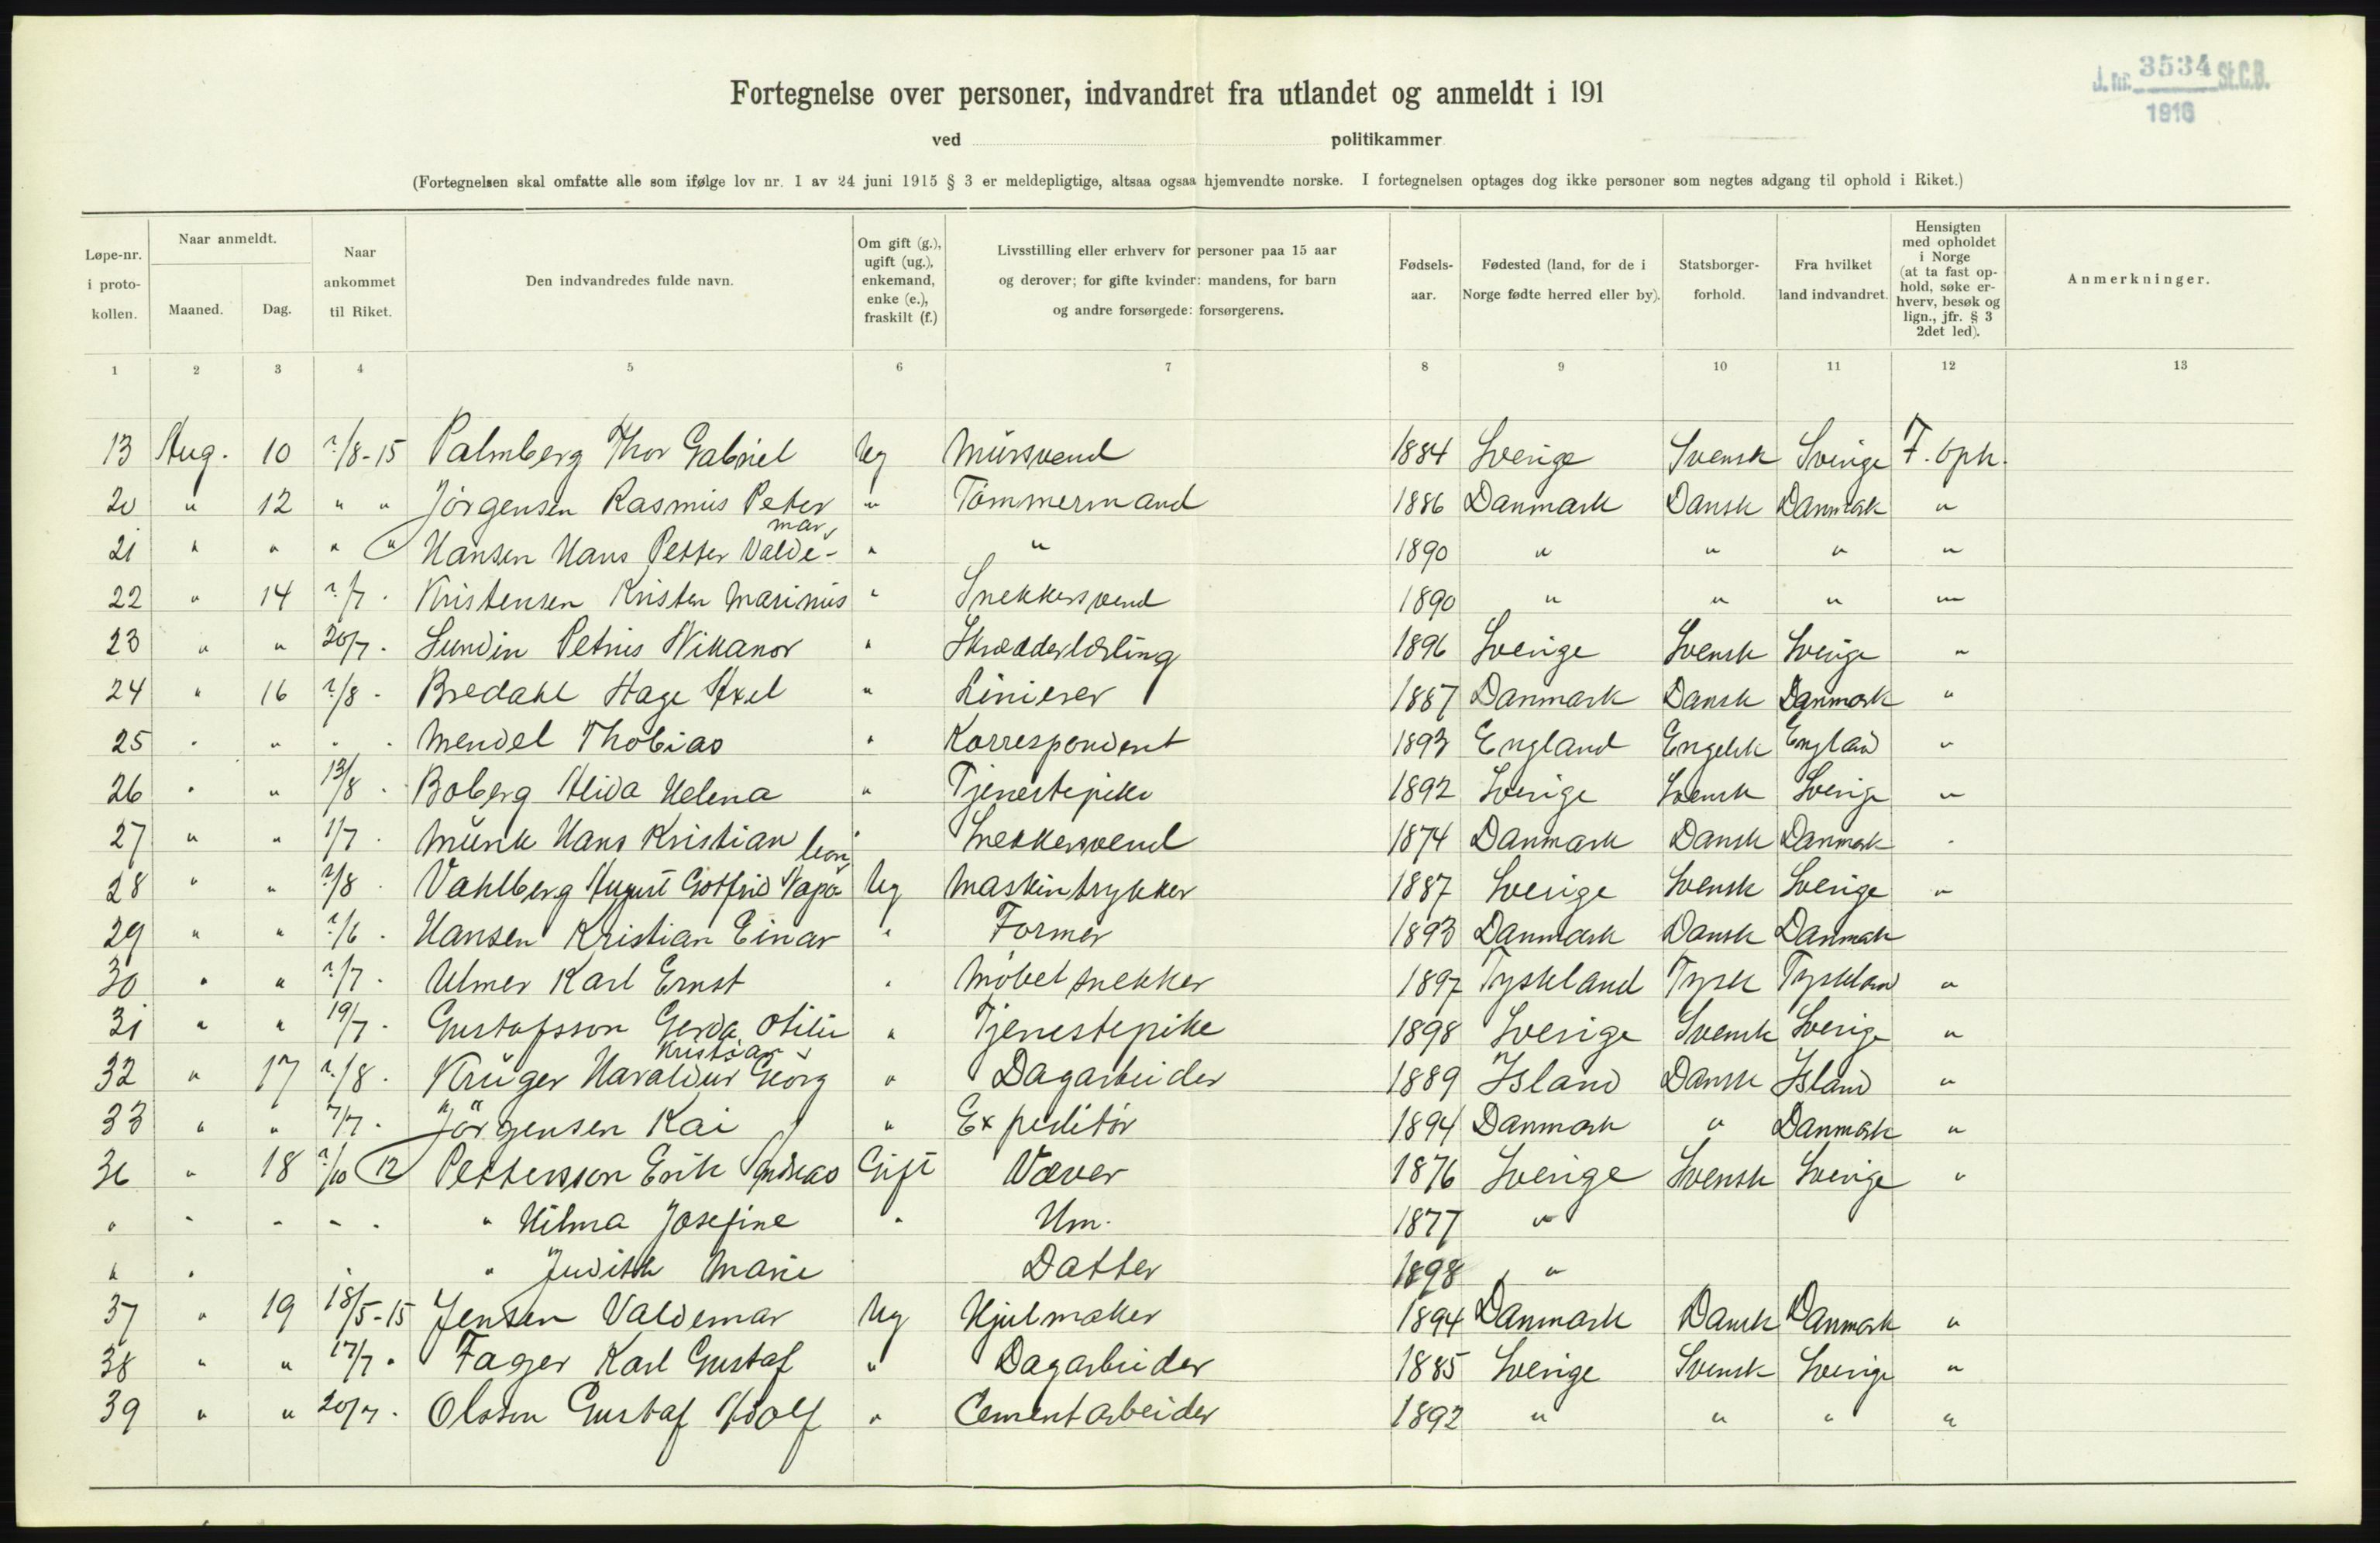 J. nr. 3534 St.C.B.
1916
Fortegnelse over personer, indvandret fra utlandet og anmeldt i 191
ved politikammer
(Fortegnelsen skal omfatte alle som ifølge lov nr. 1 av 24 juni 1915 § 3 er meldepligtige, altsaa ogsaa hjemvendte norske. I fortegnelsen optages dog ikke personer som negtes adgang til ophold i Riket.)
Løpe-nr. i proto-kollen. Naar anmeldt. Maaned. Dag. Naar ankommet til Riket. Den indvandredes fulde navn. Om gift (g.), ugift (ug.), enkemand, enke (e.), fraskilt (f.) Livsstilling eller erhverv for personer paa 15 aar og derover; for gifte kvinder: mandens, for barn og andre forsørgede: forsørgerens. Fødsels-aar. Fødested (land, for de i Norge fødte herred eller by). Statsborger-forhold. Fra hvilket land indvandret. Hensigten med opholdet i Norge (at ta fast op-hold, søke er-hverv, besøk og lign., jfr. § 3 2det led). Anmerkninger.
1 2 3 4 5 6 7 8 9 10 11 12 13
13 Aug. 10 ?/8-15 Palmberg Thor Gabriel Ug Mursvend 1884 Sverige Svensk Sverige F. oph.
20 " 12 " " Jörgensen Rasmus Peter " Tömmermand 1886 Danmark Dansk Danmark "
21 " " " " Hansen Hans Petter Valde-mar " " 1890 " " " "
22 " 14 ?/7 . Kristensen Kristen Marinus " Snekkersvend 1890 " " " "
23 " " 20/7 . Lundin Petrus Nikanor " Skrædderlærling 1896 Sverige Svensk Sverige "
24 " 16 ?/8 - Bredahl Hage Axel " Linierer 1887 Danmark Dansk Danmark "
25 " " " . Mendel Thobias " Korrespondent 1893 England Engelsk England "
26 " " 13/8 . Boberg Alida Helena " Tjenestepike 1892 Sverige Svensk Sverige "
27 " " 1/7 . Munk Hans Kristian " Snekkersvend 1874 Danmark Dansk Danmark "
28 " " ?/8 . Vahlberg August Gotfrid Napoleon Ug Maskintrykker 1887 Sverige Svensk Sverige "
29 " " ?/6 . Hansen Kristian Einar " Former 1893 Danmark Dansk Danmark
30 " " ?/7 . Ulmer Karl Ernst " Möbelsnekker 1897 Tyskland Tysk Tyskland "
31 " " 19/7 . Gustafsson Gerda Otilia " Tjenestepike 1898 Sverige Svensk Sverige "
32 " 17 ?/8 . Krüger Haraldur Kristian Georg " Dagarbeider 1889 Island Dansk Island "
33 " " 7/7 . Jörgensen Kai " Expeditör 1894 Danmark " Danmark "
36 " 18 ?/10 12 Pettersson Erik Andreas Gift Væver 1876 Sverige Svensk Sverige "
" " " " . " Hilma Josefine " Um. 1877 "
" " " " Judith Marie Datter 1898 "
37 " 19 18/5-15 Jensen Valdemar Ug Hjulmaker 1894 Danmark Dansk Danmark "
38 " " 17/7 . Fager Karl Gustaf " Dagarbeider 1885 Sverige Svensk Sverige "
39 " " 20/7 . Olsson Gustaf Adolf " Cementarbeider 1892 " " " "